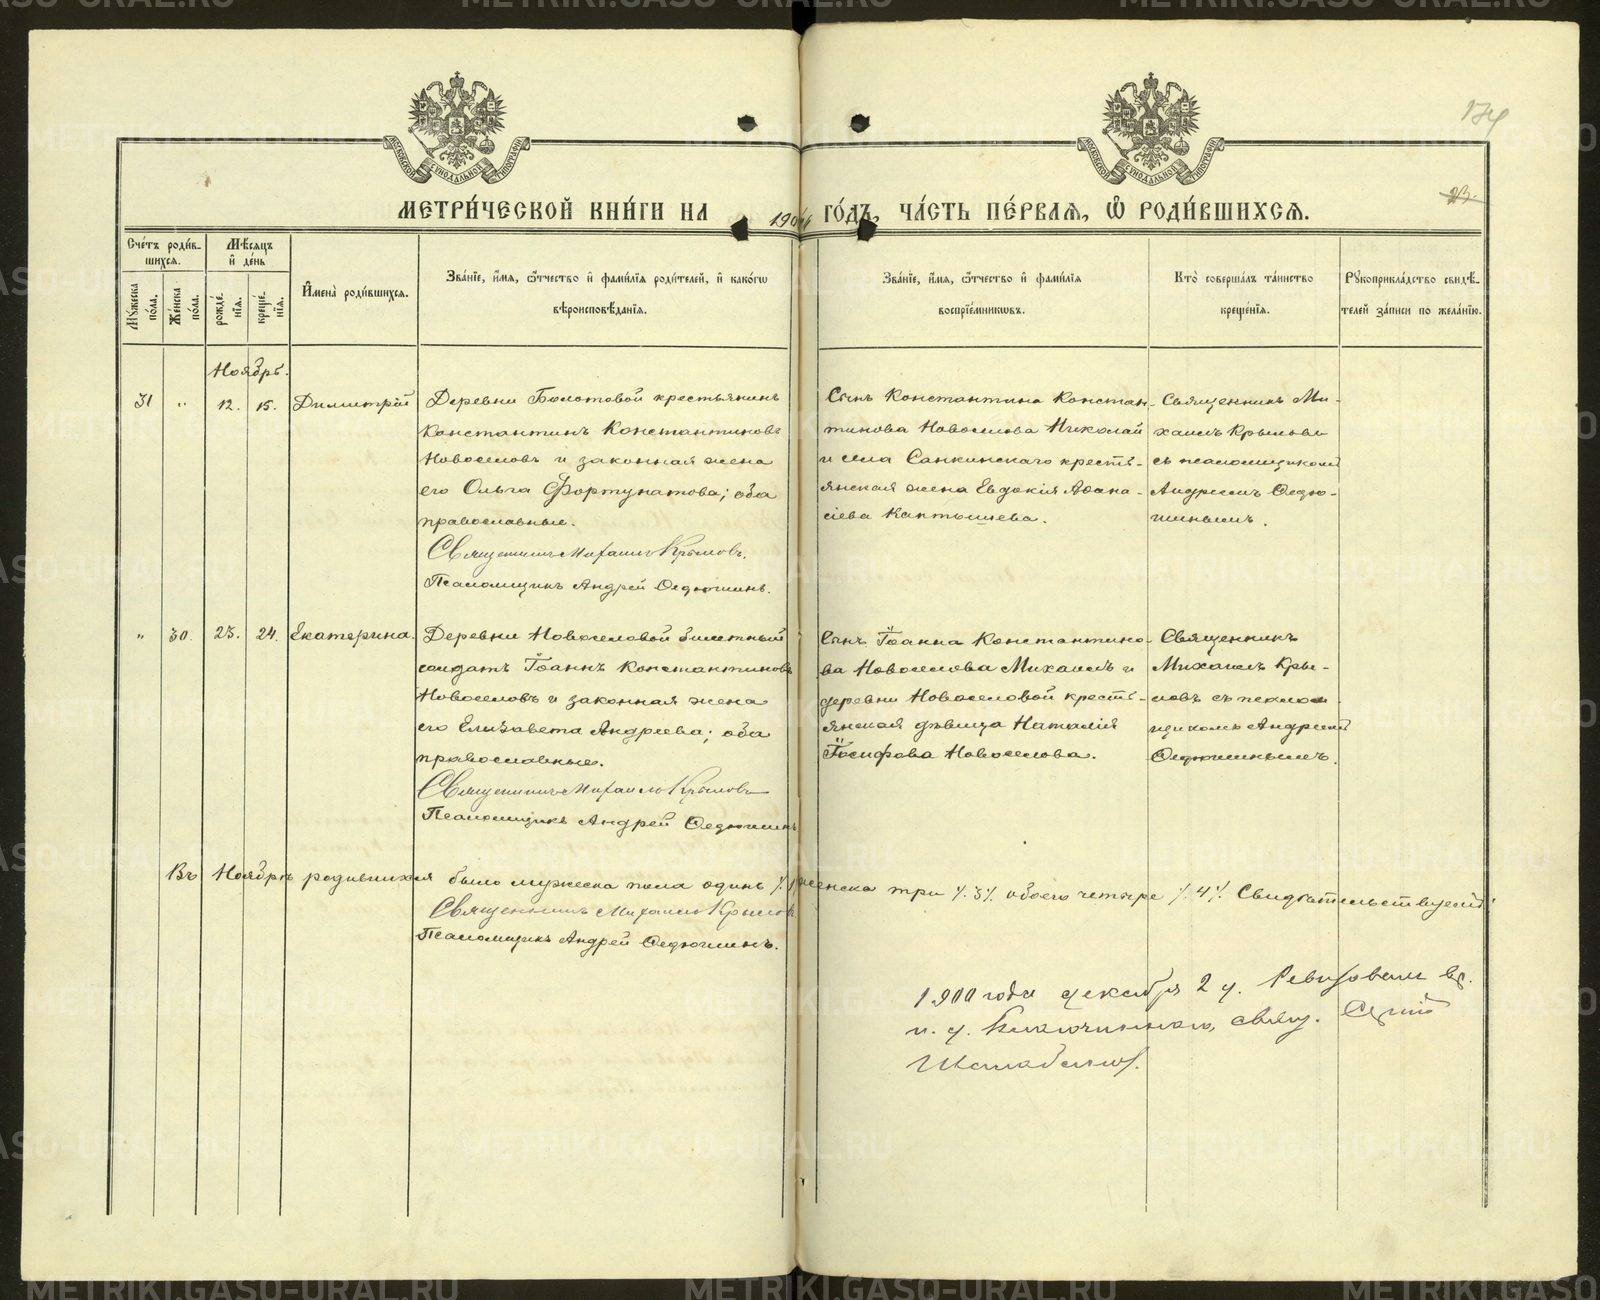 174
23.
МЕТРИ́ЧЕСКОЙ КНИ́ГИ НА 1900 ГО́ДЪ, ЧА́СТЬ ПЕ́РВАЯ, Ѽ РОДИ́ВШИХСЯ.
Сче́тъ роди́вшихся.
Мꙋ́жеска по́ла.
Же́нска по́ла.
Мѣ́сяцъ и҆ де́нь
рожде́нїя.
креще́нїя.
И҆мена̀ роди́вшихся.
Зва́нїе, и҆́мя, ѻ҆́тчество и҆ фами́лїя роди́телей, и҆ како́гѡ
вѣроисповѣ́данїя.
Зва́нїе, и҆́мя, ѻ҆́тчество и҆ фами́лїя
воспрїе́мникѡвъ.
Кто̀ соверша́лъ та́инство
креще́нїя.
Рꙋкоприкла́дство свидѣ́-
телей за́писи по жела́нїю.
Ноябрь.
31 " 12. 15. Димитрій
Деревни Болотовой крестьянинъ
Константинъ Константиновъ
Новоселовъ и законная жена
его Ольга Фортунатова; оба
православные.
Священникъ Михаилъ Крыловъ.
Псаломщикъ Андрей Ѳедюшинъ.
Сынъ Константина Констан-
тинова Новоселова Николай
и села Санкинскаго кресть-
янская жена Евдокія Аѳана-
сіева Каптышева.
Священникъ Ми-
хаилъ Крыловъ
съ псаломщикомъ
Андреемъ Ѳедю-
шинымъ.
" 30. 23. 24. Екатерина.
Деревни Новоселовой билетный
солдатъ Іоаннъ Константиновъ
Новоселовъ и законная жена
его Елизавета Андреева; оба
православные.
Священникъ Михаилъ Крыловъ
Псаломщикъ Андрей Ѳедюшинъ
Сынъ Іоанна Константино-
ва Новоселова Михаилъ и
деревни Новоселовой кресть-
янская дѣвица Наталія
Іосифова Новоселова.
Священникъ
Михаилъ Кры-
ловъ съ псалом-
щикомъ Андреемъ
Ѳедюшинымъ.
Въ Ноябрѣ родившихся было мужеска пола одинъ /.1./ женска три /.3./ обоего четыре /.4./. Свидѣтельствуемъ:
Священникъ Михаилъ Крыловъ
Псаломщикъ Андрей Ѳедюшинъ.
1900 года декабря 2 д. Ревизовалъ вр.
и. д. Благочиннаго, свящ. Сергій